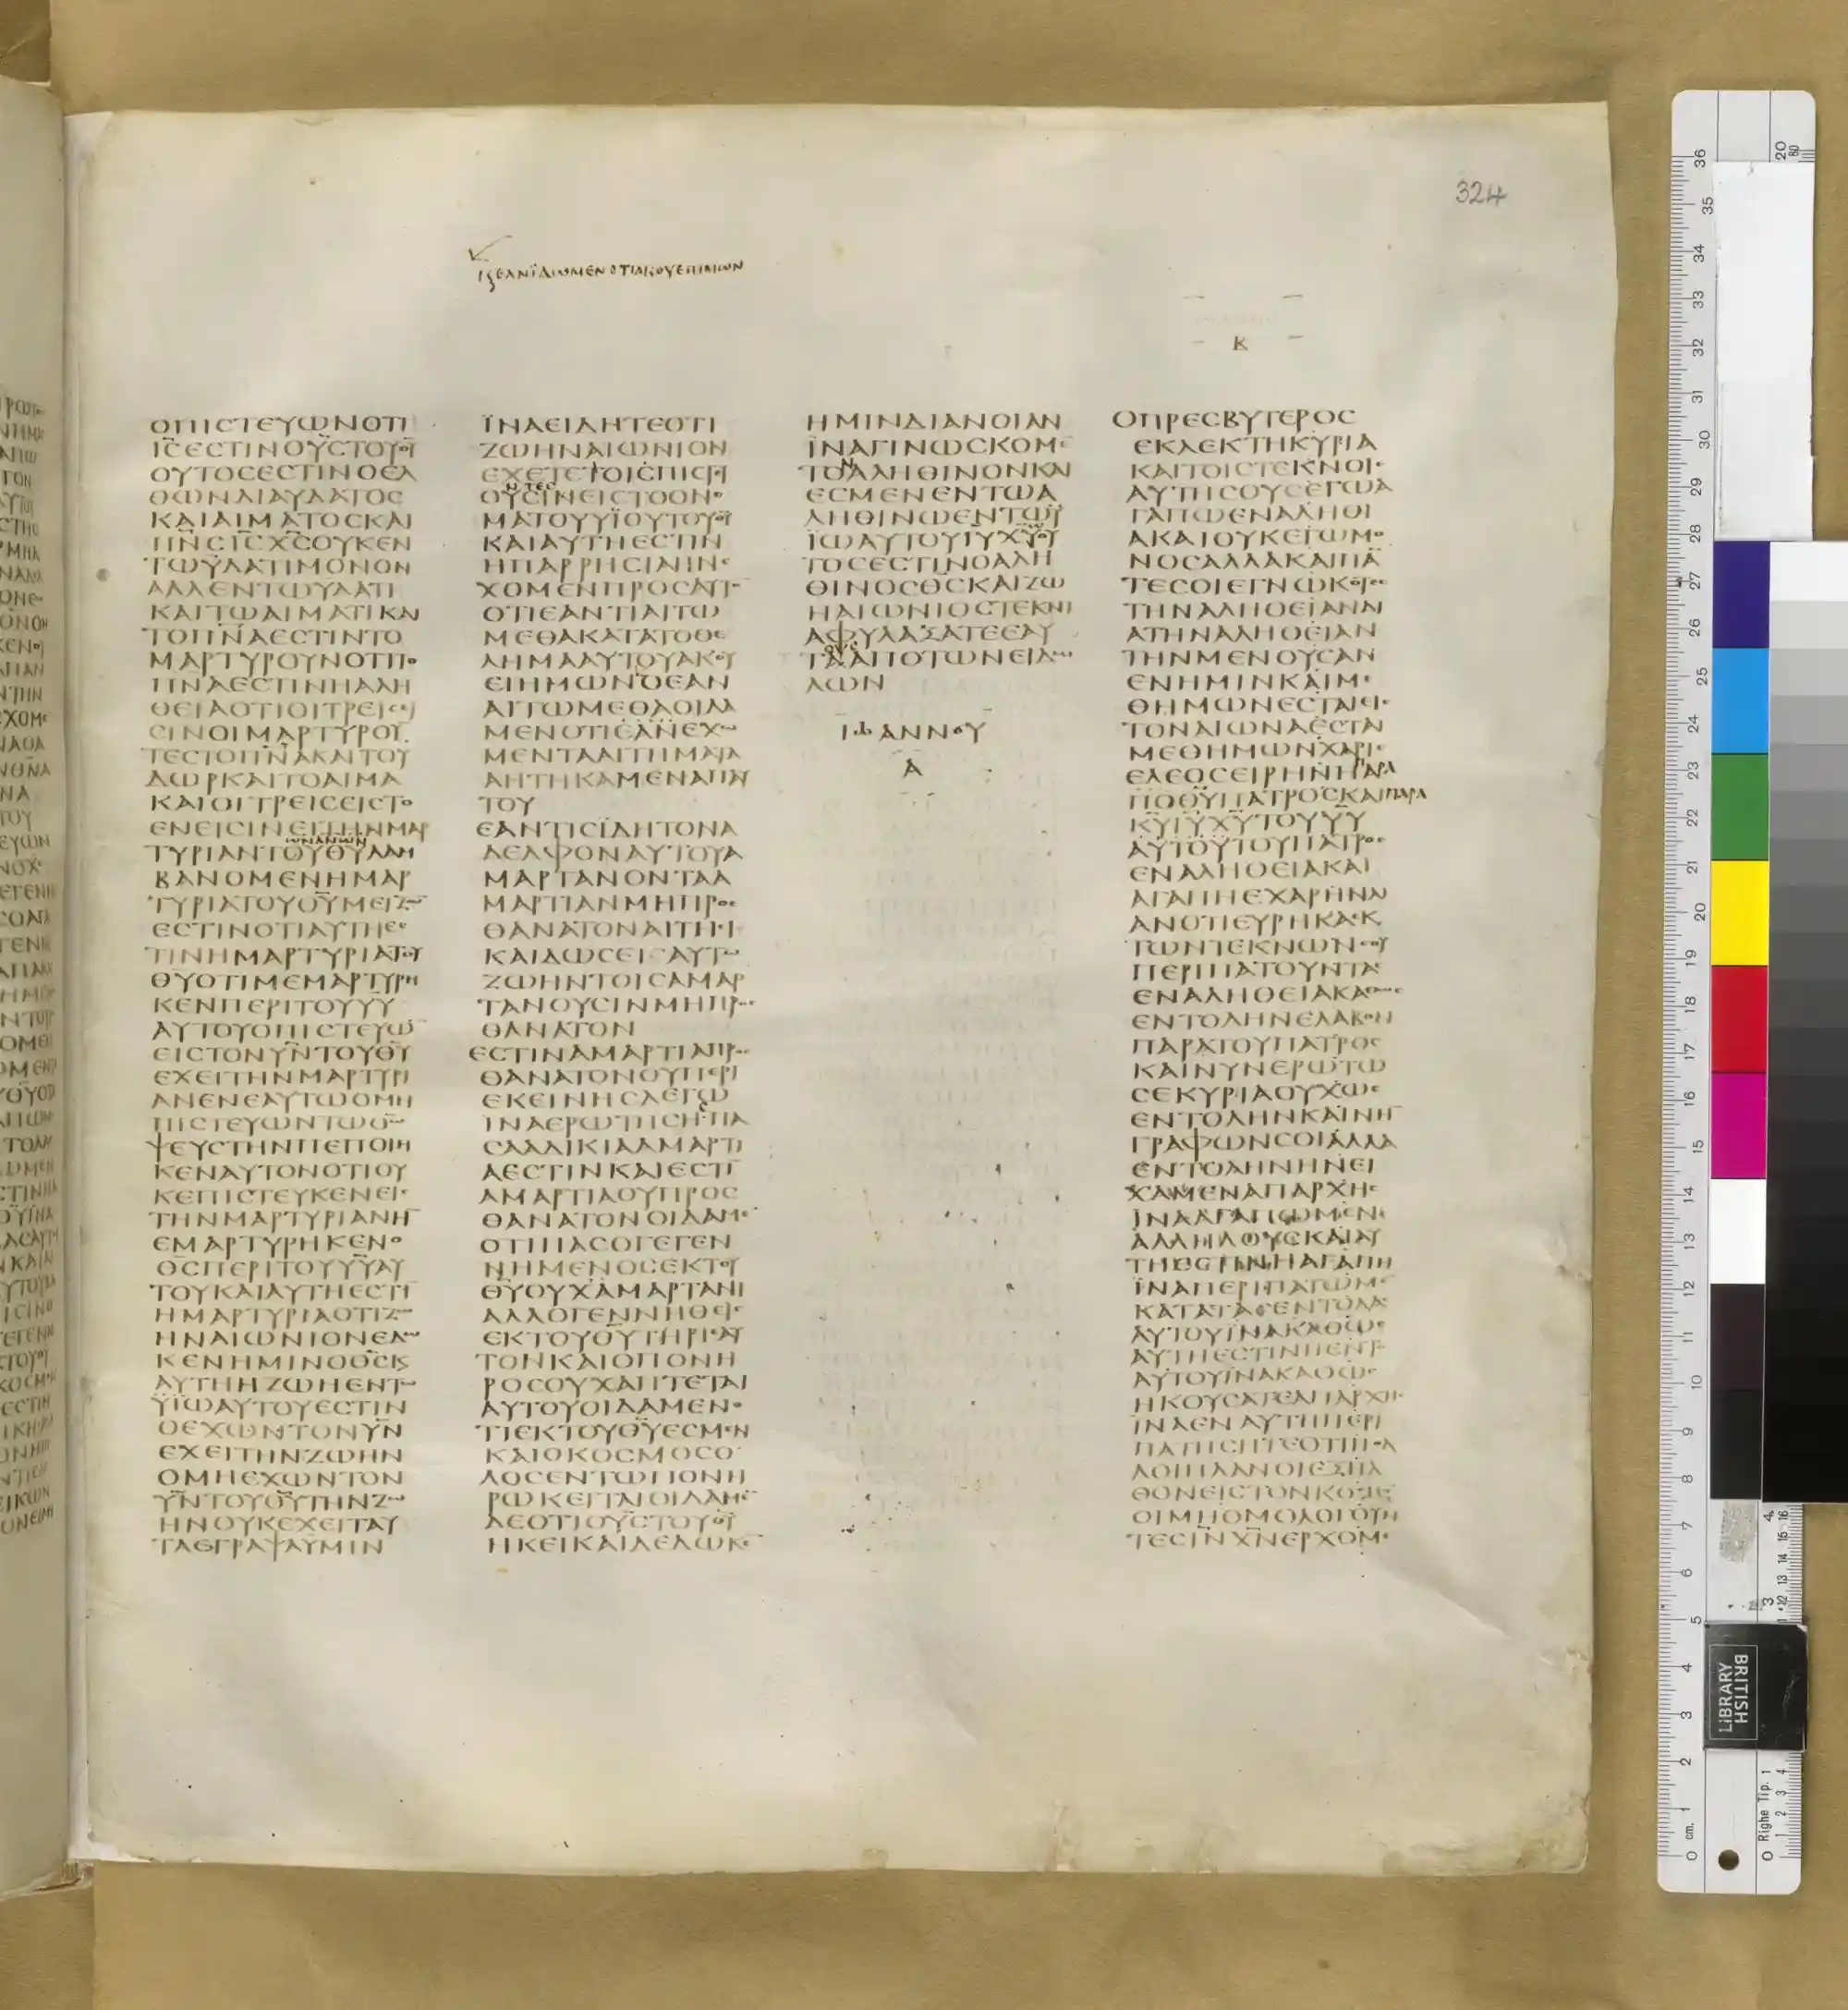 324
ΚΕΑΝΪΔΩΜΕΝΟΤΙΑΚΟΥΕΙΗΜΩΝ
ΟΠΙСΤΕΥΩΝΟΤΙ
ΙСΕСΤΙΝΟΥСΤΟΥΘΥ
ΟΥΤΟСΕСΤΙΝΟΕΛ
ΘΩΝΔΙΑΥΔΑΤΟС
ΚΑΙΑΙΜΑΤΟСΚΑΙ
ΠΝСΙСΧСΟΥΚΕΝ
ΤΩΥΔΑΤΙΜΟΝΟΝ
ΑΛΛΕΝΤΩΥΔΑΤΙ
ΚΑΙΤΩΑΙΜΑΤΙΚΑΙ
ΤΟΠΝΑΕСΤΙΝΤΟ
ΜΑΡΤΥΡΟΥΝΟΤΙΤΟ
ΠΝΑΕСΤΙΝΗΑΛΗ
ΘΕΙΑΟΤΙΟΙΤΡΕΙСΕΙ
СΙΝΟΙΜΑΡΤΥΡΟΥ
ΤΕСΤΟΠΝΑΚΑΙΤΟΥ
ΔΩΡΚΑΙΤΟΑΙΜΑ
ΚΑΙΟΙΤΡΕΙСΕΙСΤΟ
ΕΝΕΙСΙΝΕΙΤΗΝΜΑΡ
ΤΩΝΑΝΩΝ
ΤΥΡΙΑΝΤΟΥΘΥΛΑΜ
ΒΑΝΟΜΕΝΗΜΑΡ
ΤΥΡΙΑΤΟΥΘΥΜΕΙΖΩ
ΕСΤΙΝΟΤΙΑΥΤΗΕС
ΤΙΝΗΜΑΡΤΥΡΙΑΤΟΥ
ΘΥΟΤΙΜΕΜΑΡΤΥΡΗ
ΚΕΝΠΕΡΙΤΟΥΥΥ
ΑΥΤΟΥΟΠΙСΤΕΥΩ
ΕΙСΤΟΝΥΝΤΟΥΘΥ
ΕΧΕΙΤΗΝΜΑΡΤΥΡΙ
ΑΝΕΝΕΑΥΤΩΟΜΗ
ΠΙСΤΕΥΩΝΤΩΘΩ
ΨΕΥСΤΗΝΠΕΠΟΙΗ
ΚΕΝΑΥΤΟΝΟΤΙΟΥ
ΚΕΠΙСΤΕΥΚΕΝΕΙС
ΤΗΝΜΑΡΤΥΡΙΑΝΗ
ΕΜΑΡΤΥΡΗΚΕΝΟ
ΘСΠΕΡΙΤΟΥΥΥΑΥ
ΤΟΥΚΑΙΑΥΤΗΕСΤΙ
ΗΜΑΡΤΥΡΙΑΟΤΙΖΩ
ΗΝΑΙΩΝΙΟΝΕΔΩ
ΚΕΝΗΜΙΝΟΘСΚ
ΑΥΤΗΗΖΩΗΕΝΤΩ
ΥΪΩΑΥΤΟΥΕСΤΙΝ
ΟΕΧΩΝΤΟΝΥΝ
ΕΧΕΙΤΗΝΖΩΗΝ
ΟΜΗΕΧΩΝΤΟΝ
ΥΝΤΟΥΘΥΤΗΝΖΩ
ΗΝΟΥΚΕΧΕΙΤΑΥ
ΤΑΕΓΡΑΨΑΥΜΙΝ
ΪΝΑΕΙΔΗΤΕΟΤΙ
ΖΩΗΝΑΙΩΝΙΟΝ
ΕΧΕΤΕΤΟΙСΠΙСΤΕΥ
ΝΤΕС
ΟΥСΙΝΕΙСΤΟΟΝΟ
ΜΑΤΟΥΥΪΟΥΤΟΥΘΥ
ΚΑΙΑΥΤΗΕСΤΙΝ
ΗΠΑΡΡΗСΙΑΗΝΕ
ΧΟΜΕΝΠΡΟСΑΥΤΟ
ΟΤΙΕΑΝΤΙΑΙΤΩ
ΜΕΘΑΚΑΤΑΤΟΘΕ
ΛΗΜΑΑΥΤΟΥΑΚΟΥ
ΕΙΗΜΩΝΟΕΑΝ
ΑΙΤΩΜΕΘΑΟΙΔΑ
ΜΕΝΟΤΙΕΑΝΕΧΩ
ΜΕΝΤΑΑΙΤΗΜΑΤΑ
ΑΗΤΗΚΑΜΕΝΑΠΑΥ
ΤΟΥ
ΕΑΝΤΙСΙΔΗΤΟΝΑ
ΔΕΛΦΟΝΑΥΤΟΥΑ
ΜΑΡΤΑΝΟΝΤΑΑ
ΜΑΡΤΙΑΝΜΗΠΡΟС
ΘΑΝΑΤΟΝΑΙΤΗСΙ
ΚΑΙΔΩСΕΙΑΥΤΩ
ΖΩΗΝΤΟΙСΑΜΑΡ
ΤΑΝΟΥСΙΝΜΗΠΡΟС
ΘΑΝΑΤΟΝ
ΕСΤΙΝΑΜΑΡΤΙΑΠΡΟС
ΘΑΝΑΤΟΝΟΥΠΕΡΙ
ΕΚΕΙΝΗСΛΕΓΩ
ΙΝΑΕΡΩΤΗСΗΠΑ
СΑΑΔΙΚΙΑΑΜΑΡΤΙ
ΑΕСΤΙΝΚΑΙΕСΤΙ
ΑΜΑΡΤΙΑΟΥΠΡΟС
ΘΑΝΑΤΟΝΟΙΔΑΜΕ
ΟΤΙΠΑСΟΓΕΓΕΝ
ΝΗΜΕΝΟСΕΚΤΟΥ
ΘΥΟΥΧΑΜΑΡΤΑΝΙ
ΑΛΛΟΓΕΝΝΗΘΕΙС
ΕΚΤΟΥΘΥΤΗΡΙΑΥ
ΤΟΝΚΑΙΟΠΟΝΗ
ΡΟСΟΥΧΑΠΤΕΤΑΙ
ΑΥΤΟΥΟΙΔΑΜΕΝΟ
ΤΙΕΚΤΟΥΘΥΕСΜΕΝ
ΚΑΙΟΚΟСΜΟСΟ
ΛΟСΕΝΤΩΠΟΝΗ
ΡΩΚΕΙΤΑΙΟΙΔΑΜΕ
ΔΕΟΤΙΟΥСΤΟΥΘΥ
ΗΚΕΙΚΑΙΔΕΔΩΚΕ
ΗΜΙΝΔΙΑΝΟΙΑΝ
ΪΝΑΓΙΝΩСΚΟΜΕ
ΤΟΑΛΗΘΙΝΟΝΚΑΙ
ΕСΜΕΝΕΝΤΩΑ
ΛΗΘΙΝΩΕΝΤΩΥ
ΪΩΑΥΤΟΥΙΥΧΥΟΥ
ΤΟСΕСΤΙΝΟΑΛΗ
ΘΙΝΟСΘСΚΑΙΖΩ
ΗΑΙΩΝΙΟСΤΕΚΝΙ
ΑΦΥΛΑΞΑΤΕΕΑΥ
ΤΑΑΠΟΤΩΝΕΙΔΩ
ΛΩΝ
ΙΩΑΝΝΟΥ
Α
Β
ΟΠΡΕСΒΥΤΕΡΟС
ΕΚΛΕΚΤΗΚΥΡΙΑ
ΚΑΙΤΟΙСΤΕΚΝΟΙС
ΑΥΤΗСΟΥСΕΓΩΑ
ΓΑΠΩΕΝΑΛΗΘΙ
ΑΚΑΙΟΥΚΕΓΩΜΟ
ΝΟСΑΛΛΑΚΑΙΠΑ
ΤΕСΟΙΕΓΝΩΚΟΤΕС
ΤΗΝΑΛΗΘΕΙΑΝΔΙ
ΑΤΗΝΑΛΗΘΕΙΑΝ
ΤΗΝΜΕΝΟΥСΑΝ
ΕΝΗΜΙΝΚΑΙΜΕ
ΘΗΜΩΝΕСΤΑΙΕΙС
ΤΟΝΑΙΩΝΑΕСΤΑ
ΜΕΘΗΜΩΝΧΑΡΙС
ΕΛΕΟСΕΙΡΗΝΗΠΑΡΑ
ΠΟΘΥΠΑΤΡΟСΚΑΙΠΑΡΑ
ΚΥΙΥΧΥΤΟΥΥΥ
ΑΥΤΟΥΤΟΥΠΑΤΡΟС
ΕΝΑΛΗΘΕΙΑΚΑΙ
ΑΓΑΠΗΕΧΑΡΗΝΛΙ
ΑΝΟΤΙΕΥΡΗΚΑΕΚ
ΤΩΝΤΕΚΝΩΝСΟΥ
ΠΕΡΙΠΑΤΟΥΝΤΑС
ΕΝΑΛΗΘΕΙΑΚΑΘΩС
ΕΝΤΟΛΗΝΕΛΑΒΟΝ
ΠΑΡΑΤΟΥΠΑΤΡΟС
ΚΑΙΝΥΝΕΡΩΤΩ
СΕΚΥΡΙΑΟΥΧΩС
ΕΝΤΟΛΗΝΚΑΙΝΗ
ΓΡΑΦΩΝСΟΙΑΛΛΑ
ΕΝΤΟΛΗΝΗΝΕΙ
ΧΑΜΕΝΑΠΑΡΧΗС
ΙΝΑΑΓΑΠΩΜΕΝ
ΑΛΛΗΛΟΥСΚΑΙΑΥ
ΤΗΕСΤΙΝΗΑΓΑΠΗ
ΪΝΑΠΕΡΙΠΑΤΩΜΕ
ΚΑΤΑΤΑСΕΝΤΟΛΑС
ΑΥΤΟΥΪΝΑΚΑΘΩС
ΑΥΤΗΕСΤΙΝΗΕΝΤ
ΑΥΤΟΥΪΝΑΚΑΘΩС
ΗΚΟΥСΑΤΕΑΠΑΡΧΗС
ΙΝΑΕΝΑΥΤΗΠΕΡΙ
ΠΑΤΗСΗΤΕΟΤΙΠΟΛ
ΛΟΙΠΛΑΝΟΙΕΞΗΛ
ΘΟΝΕΙСΤΟΝΚΟСΜ
ΟΙΜΗΟΜΟΛΟΓΟΥΝ
ΤΕСΙΝΧΝΕΡΧΟΜΕ
BRITISH
LIBRARY
Righe Tip. 1
cm.